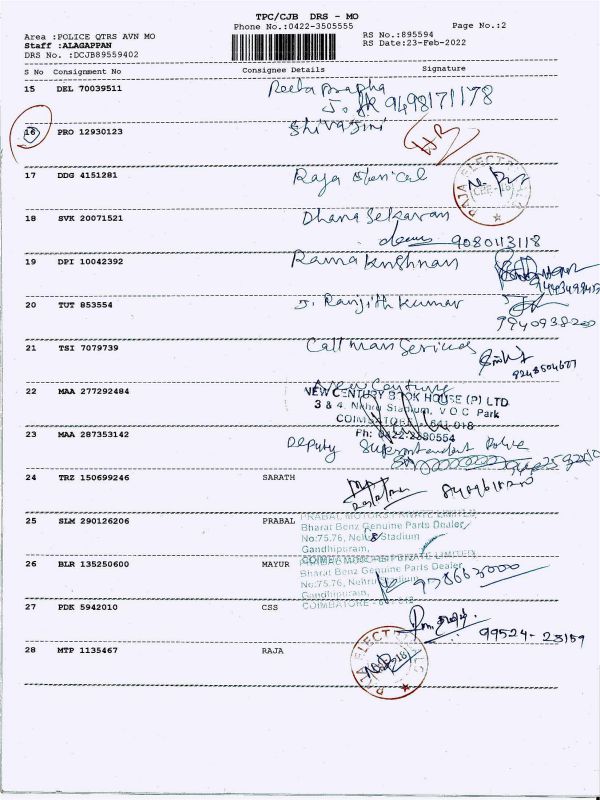 TPC/CJB DRS - MO
Phone No.:0422-3505555
Page No.:2
Area :POLICE QTRS AVN MO
RS No.:895594
Staff :ALAGAPPAN
RS Date:23-Feb-2022
DRS No. :DCJB89559402
S No Consignment No Consignee Details Signature
15 DEL 70039511 Reeta Prapha
9498171178
16 PRO 12930123 Shivagini
17 DDG 4151281 Raja
RAJA ELECTRICALS
18 SVK 20071521 Dhana Sekaran
9080113118
19 DPI 10042392 Ramakrishnan
20 TUT 853554 J. Ranjith Kumar
9940938200
21 TSI 7079739 Callman Services
22 MAA 277292484 New Century
NEW CENTURY BOOK HOUSE (P) LTD
3 & 4. Nehru Stadium, V O C Park
COIMBATORE - 641 018
Ph: 0422-2380554
23 MAA 287353142 Deputy Superintendent Police
24 TRZ 150699246 SARATH
25 SLM 290126206 PRABAL
PRABAL MOTORS PRIVATE LIMITED
Bharat Benz Genuine Parts Dealer
No:75,76, Nehru Stadium
Gandhipuram,
26 BLR 135250600 MAYUR
Bharat Benz Genuine Parts Dealer
No:75,76, Nehru Stadium
Gandhipuram,
COIMBATORE - 641 018
27 PDK 5942010 CSS
99524-23159
28 MTP 1135467 RAJA
RAJA ELECTRICALS